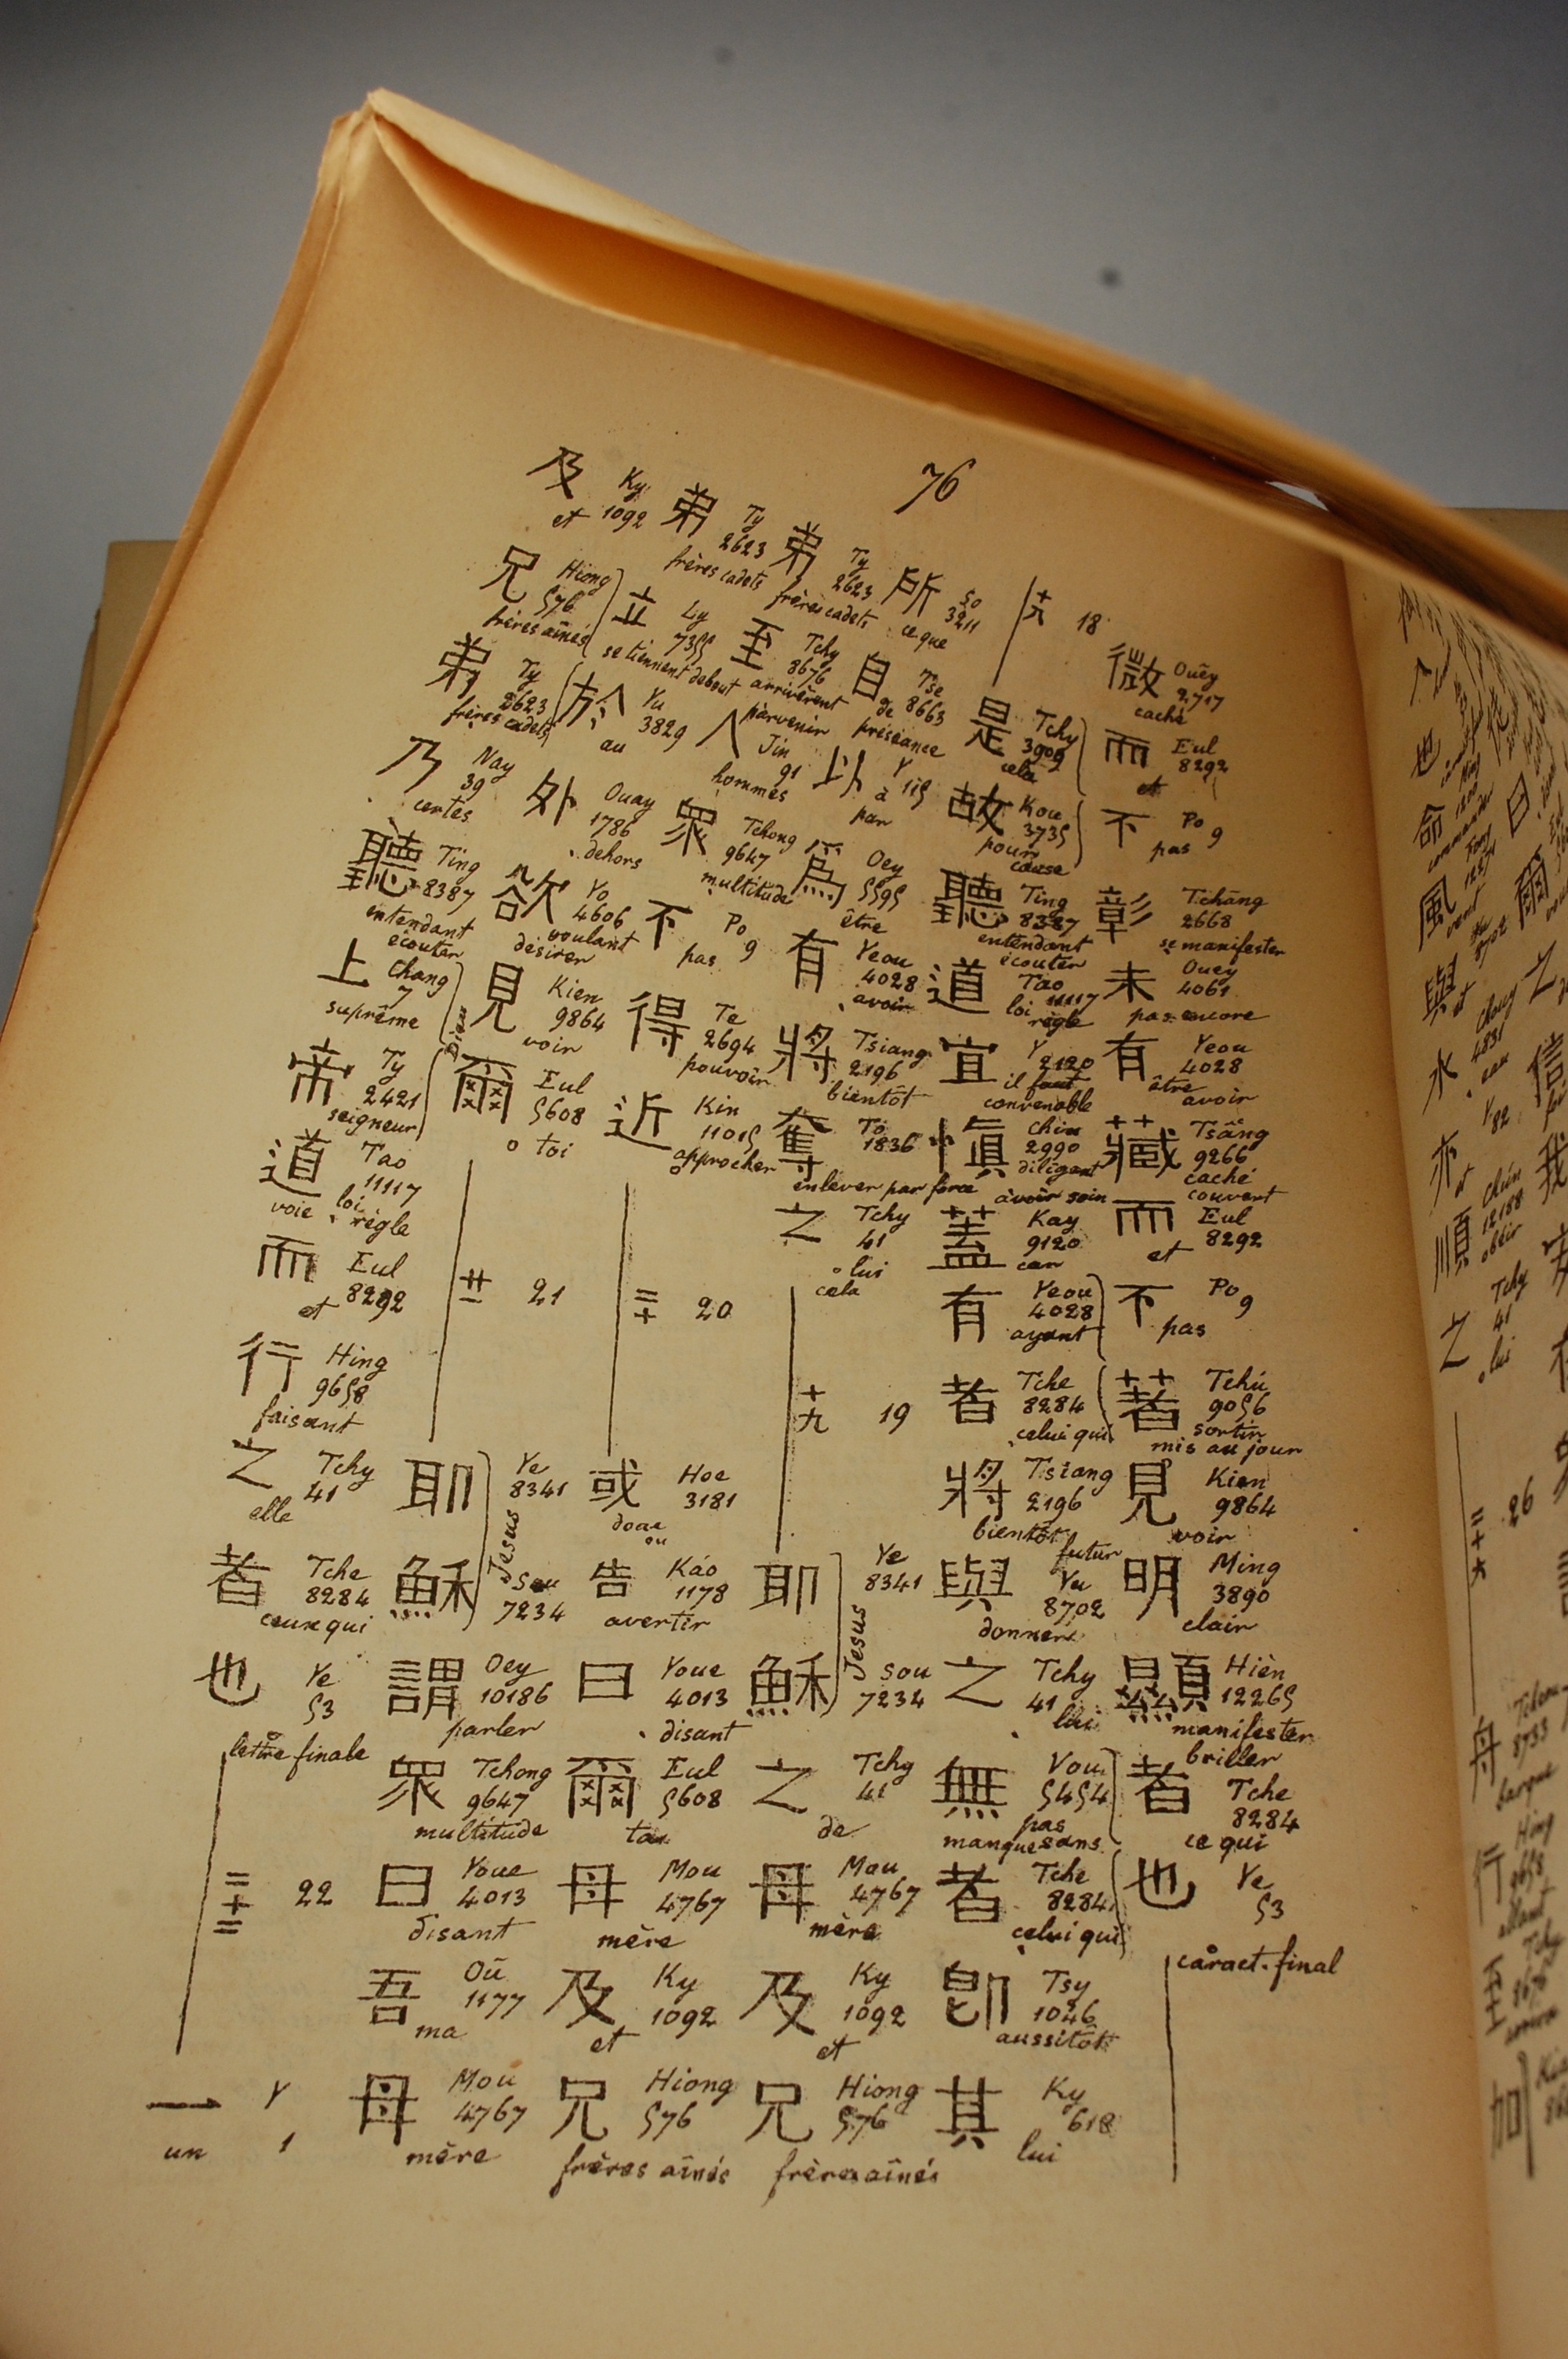 76
微 Ouēy 2717 caché
而 Eul 8292 et
不 Po 9 pas
彰 Tchāng 2668 se manifester
未 Ouey 4061 pas encore
有 Yeou 4028 être avoir
藏 Tsâng 9266 caché couvert
而 Eul 8292 et
不 Po 9 pas
著 Tchú 9056 sortir mis au jour
見 Kien 9864 voir
明 Ming 3890 clair
顯 Hièn 12265 manifester briller
者 Tche 8284 ce qui
也 Ye 53 caract. final
十八 18
是 Tchy 3909 cela
故 Kou 3735 pour cause
聽 Ting 8387 entendant écouter
道 Tao 11117 loi règle
宜 Y 2120 il faut convenable
慎 Chin 2990 diligent avoir soin
蓋 Kay 9120 car
有 Yeou 4028 ayant
者 Tche 8284 celui qui
將 Tsiang 2196 bientôt futur
與 Yu 8702 donner
之 Tchy 41 lui
無 Vou 5454 pas manque sans
者 Tche 8284 celui qui
即 Tsy 1046 aussitôt
其 Ky 618 lui
所 So 3211 ce que
自 Tse 8663 de préséance
以 Y 115 à par
為 Oey 5595 être
有 Yeou 4028 avoir
將 Tsiang 2196 bientôt
奪 To 1836 enlever par force
之 Tchy 41 lui cela
十九 19
耶 Ye 8341
穌 Sou 7234 Jesus
之 Tchy 41 de
母 Mou 4767 mère
及 Ky 1092 et
兄 Hiong 576 frères aînés
弟 Ty 2623 frères cadets
至 Tchy 8676 arrivèrent parvenir
人 Jin 91 hommes
眾 Tchong 9647 multitude
不 Po 9 pas
得 Te 2694 pouvoir
近 Kin 11015 approcher
二十 20
或 Hoe 3181 ou
告 Káo 1178 avertir
曰 Youe 4013 disant
爾 Eul 5608 ta
母 Mou 4767 mère
及 Ky 1092 et
兄 Hiong 576 frères aînés
弟 Ty 2623 frères cadets
立 Ly 7355 se tiennent debout
於 Yu 3829 au
外 Ouay 1786 dehors
欲 Yo 4606 voulant désirer
見 Kien 9864 voir
爾 Eul 5608 toi
廿一 21
耶 Ye 8341
穌 Sou 7234 Jesus
謂 Oey 10186 parler
眾 Tchong 9647 multitude
曰 Youe 4013 disant
吾 Oū 1177 ma
母 Mou 4767 mère
及 Ky 1092 et
兄 Hiong 576 frères aînés
弟 Ty 2623 frères cadets
乃 Nay 39 certes
聽 Ting 8387 entendant écouter
上 Chang 7 suprême
帝 Ty 2421 seigneur Dieu
道 Tao 11117 voie loi règle
而 Eul 8292 et
行 Hing 9658 faisant
之 Tchy 41 elle
者 Tche 8284 ceux qui
也 Ye 53 lettre finale
二十二 22
一 Y 1 un